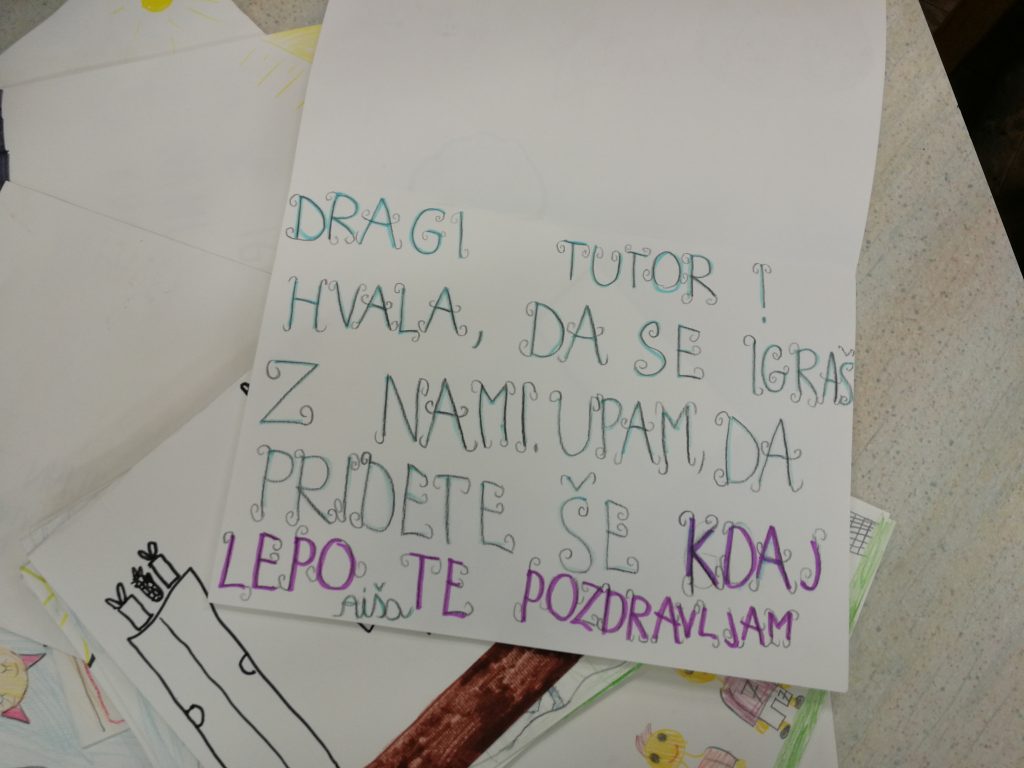 DRAGI TUTOR!
HVALA, DA SE IGRAŠ
Z NAMI. UPAM, DA
PRIDETE ŠE KDAJ
LEPO TE POZDRAVLJAM
Aiša